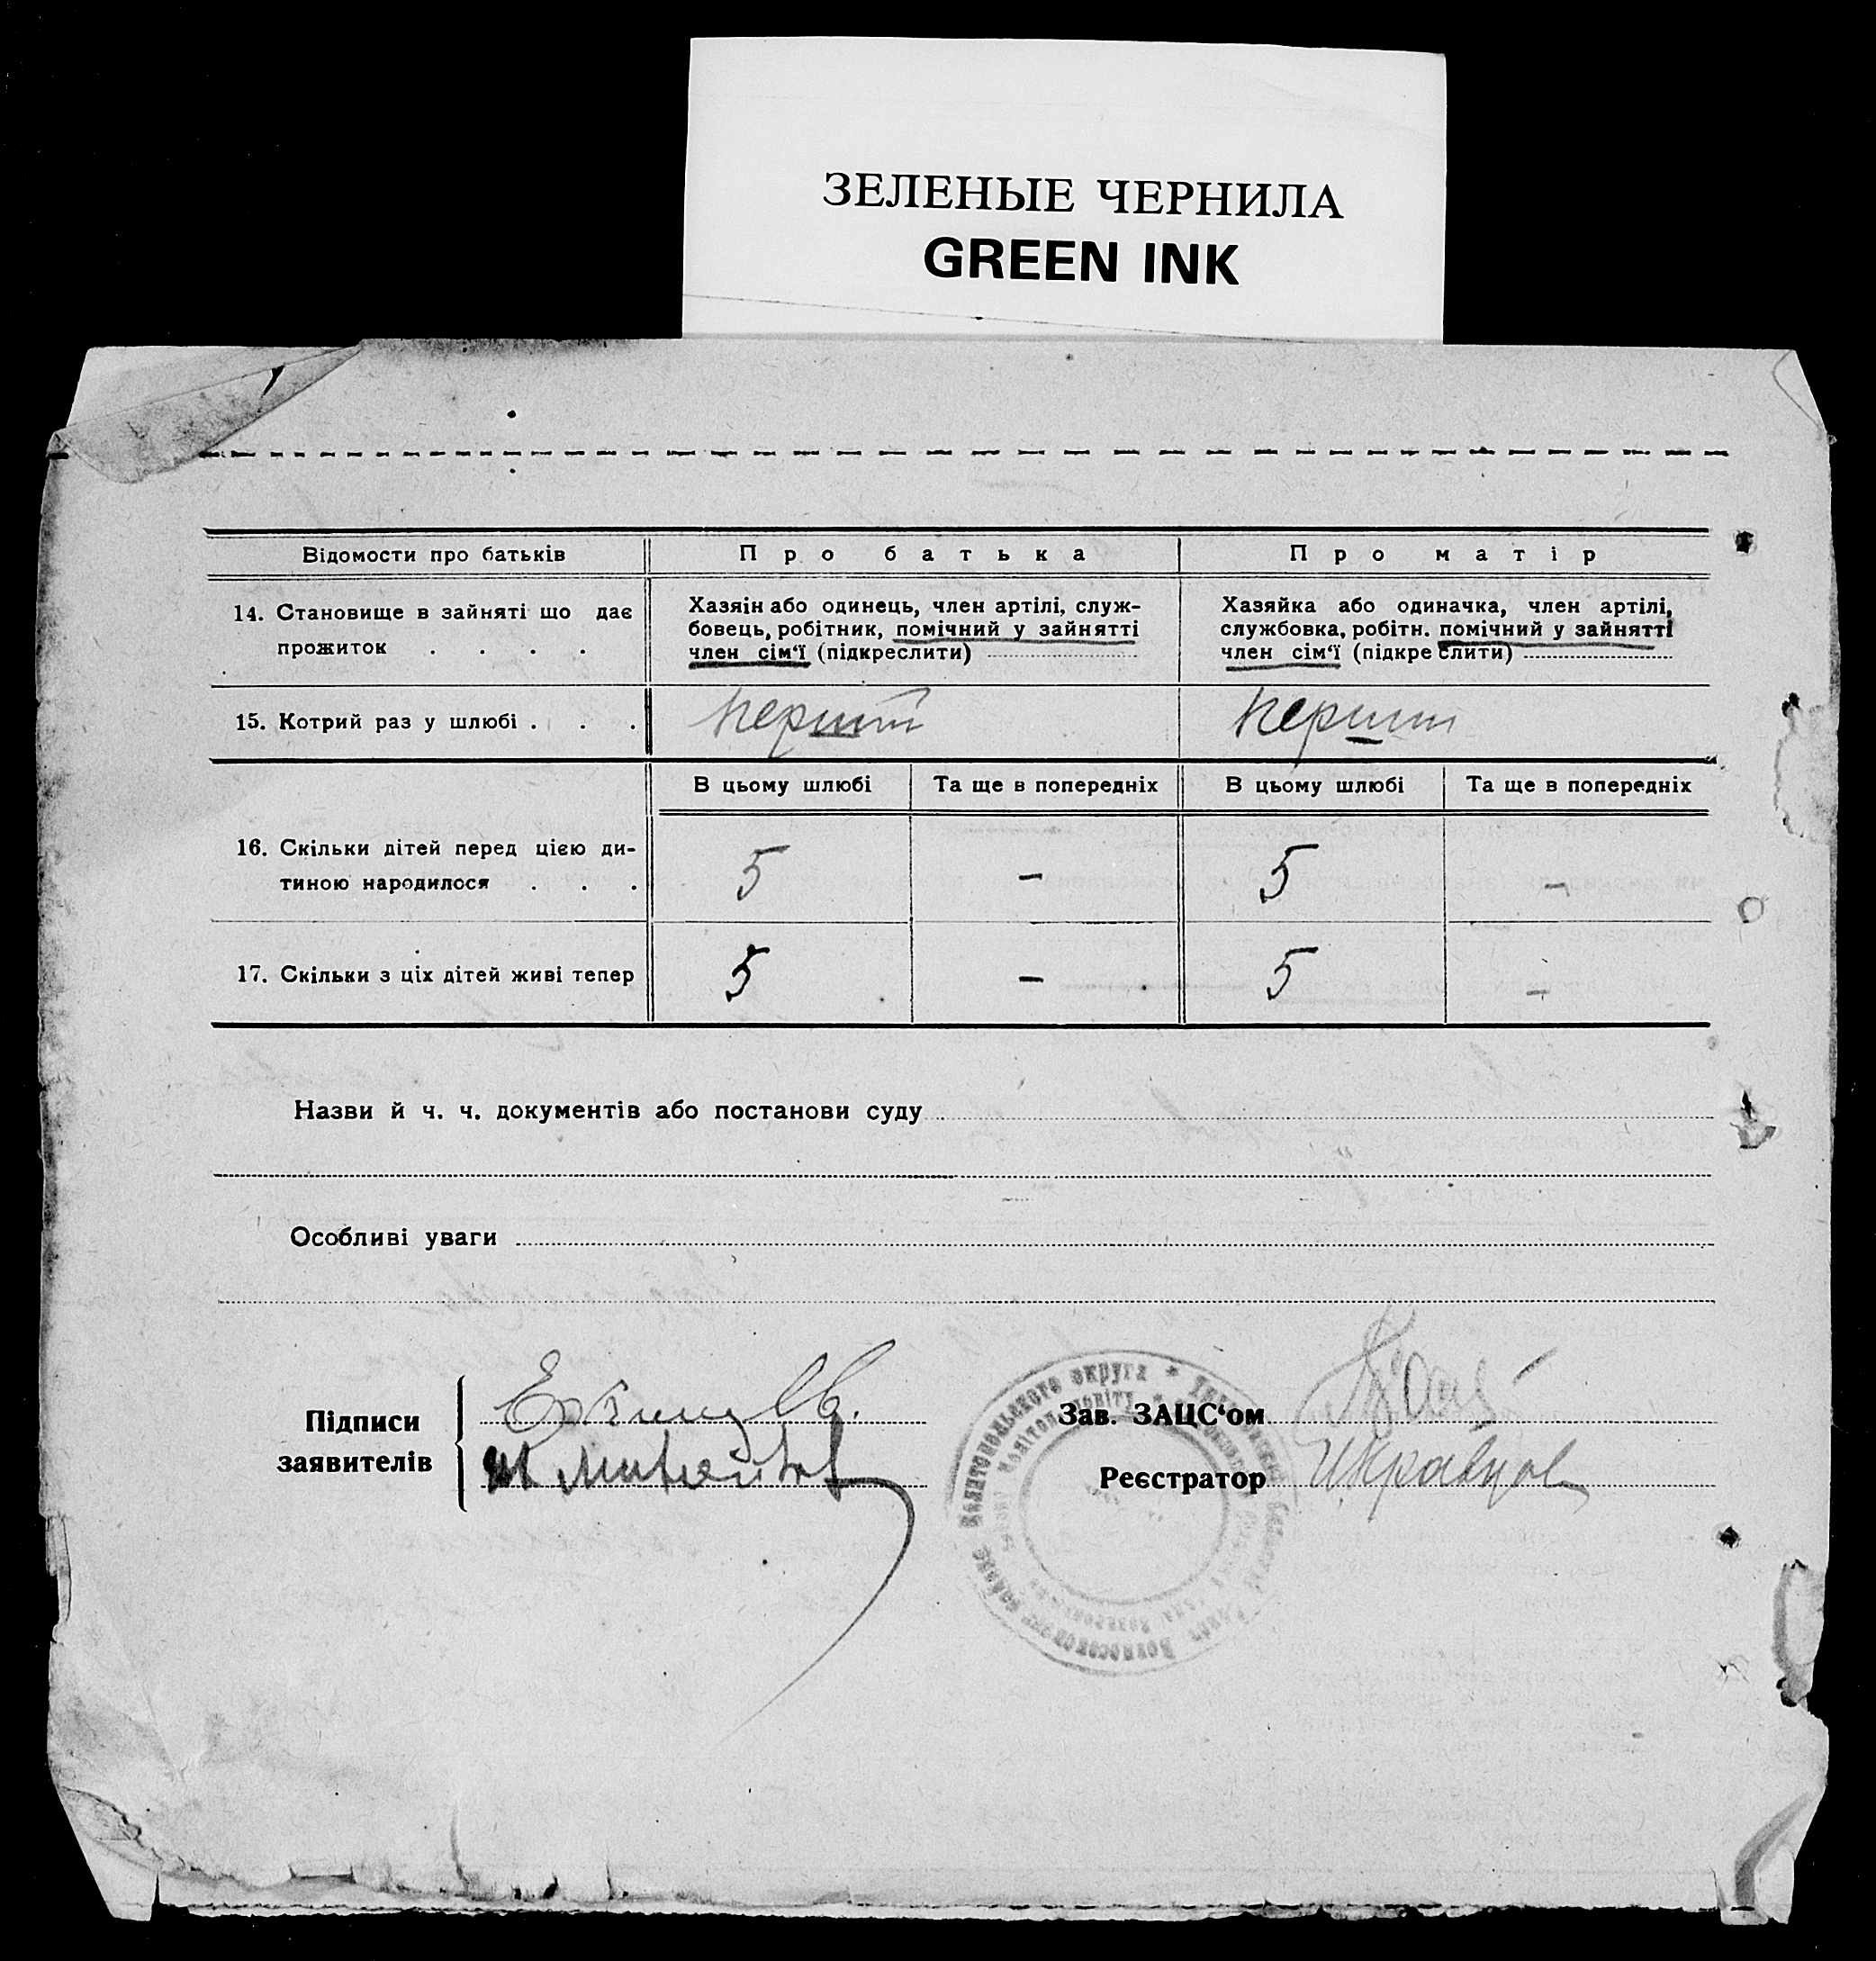 ЗЕЛЕНЫЕ ЧЕРНИЛА
GREEN INK
Відомости про батьків Про батька Про матір
14. Становище в зайняті що дає прожиток . . . .
Хазяїн або одинець, член артілі, служ-
бовець, робітник, помічний у зайнятті
член сім‘ї (підкреслити)
Хазяйка або одиначка, член артілі,
службовка, робітн. помічний у зайнятті
член сім‘ї (підкреслити)
15. Котрий раз у шлюбі . . . перший перший
В цьому шлюбі Та ще в попередніх В цьому шлюбі Та ще в попередніх
16. Скільки дітей перед цією ди-
тиною народилося . . . 5 – 5 –
17. Скільки з ціх дітей живі тепер 5 – 5 –
Назви й ч. ч. документів або постанови суду
Особливі уваги
Підписи
заявителів
Зав. ЗАЦС‘ом
Реєстратор И Кравцов
округа